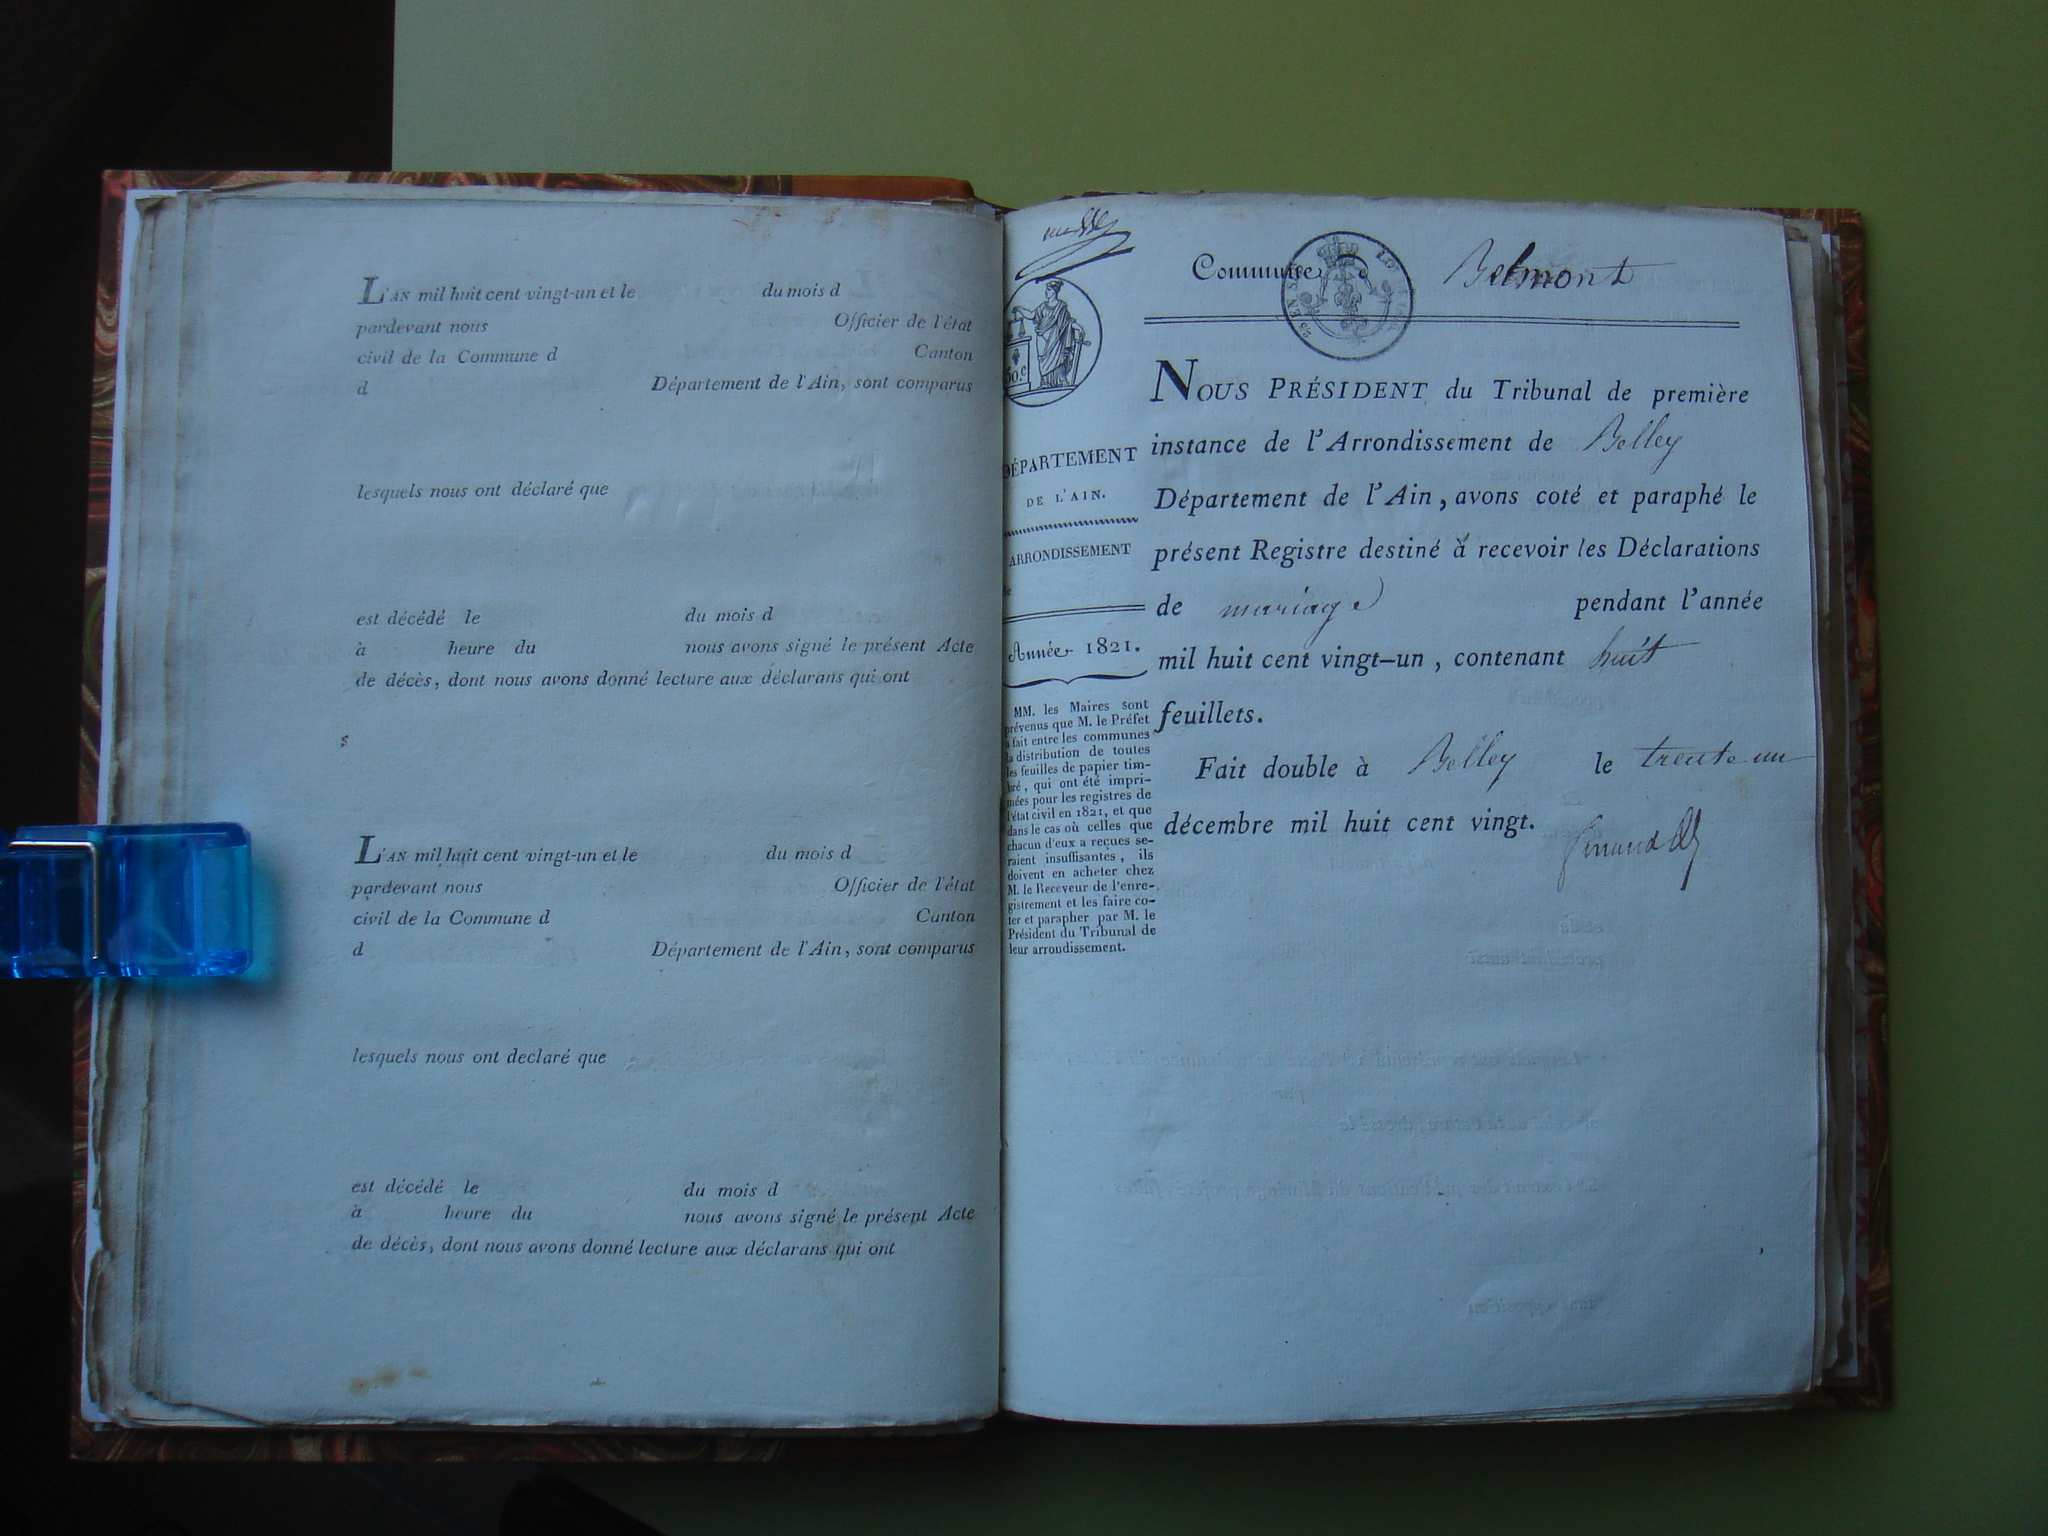 L'AN mil huit cent vingt-un et le du mois d
pardevant nous Officier de l'état
civil de la Commune d Canton
d Département de l'Ain, sont comparus
lesquels nous ont déclaré que
est décédé le du mois d
à heure du nous avons signé le présent Acte
de décès, dont nous avons donné lecture aux déclarans qui ont
L'AN mil huit cent vingt-un et le du mois d
pardevant nous Officier de l'état
civil de la Commune d Canton
d Département de l'Ain, sont comparus
lesquels nous ont declaré que
est décédé le du mois d
à heure du nous avons signé le présent Acte
de décès, dont nous avons donné lecture aux déclarans qui ont
50.c
DÉPARTEMENT
DE L'AIN.
ARRONDISSEMENT
de
Année 1821.
MM. les Maires sont
prévenus que M. le Préfet
a fait entre les communes
la distribution de toutes
les feuilles de papier tim-
bré, qui ont été impri-
mées pour les registres de
l'état civil en 1821, et que
dans le cas où celles que
chacun d'eux a reçues se-
raient insuffisantes, ils
doivent en acheter chez
M. le Receveur de l'enre-
gistrement et les faire co-
ter et parapher par M. le
Président du Tribunal de
leur arrondissement.
Commune Belmont
NOUS PRÉSIDENT du Tribunal de première
instance de l'Arrondissement de Belley
Département de l'Ain, avons coté et paraphé le
présent Registre destiné à recevoir les Déclarations
de mariage pendant l'année
mil huit cent vingt-un, contenant huit
feuillets.
Fait double à Belley le trente un
décembre mil huit cent vingt.